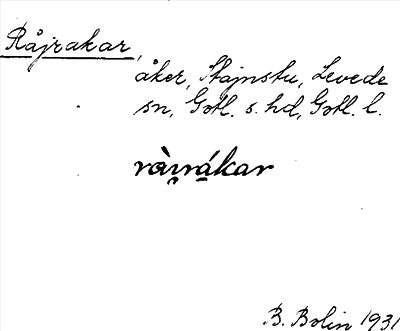 Råjrakar,
åker, Stajnstu, Levede
sn, Gotl. s. hd, Gotl. l.
ràı̯rá̱kar
B. Bolin 1931